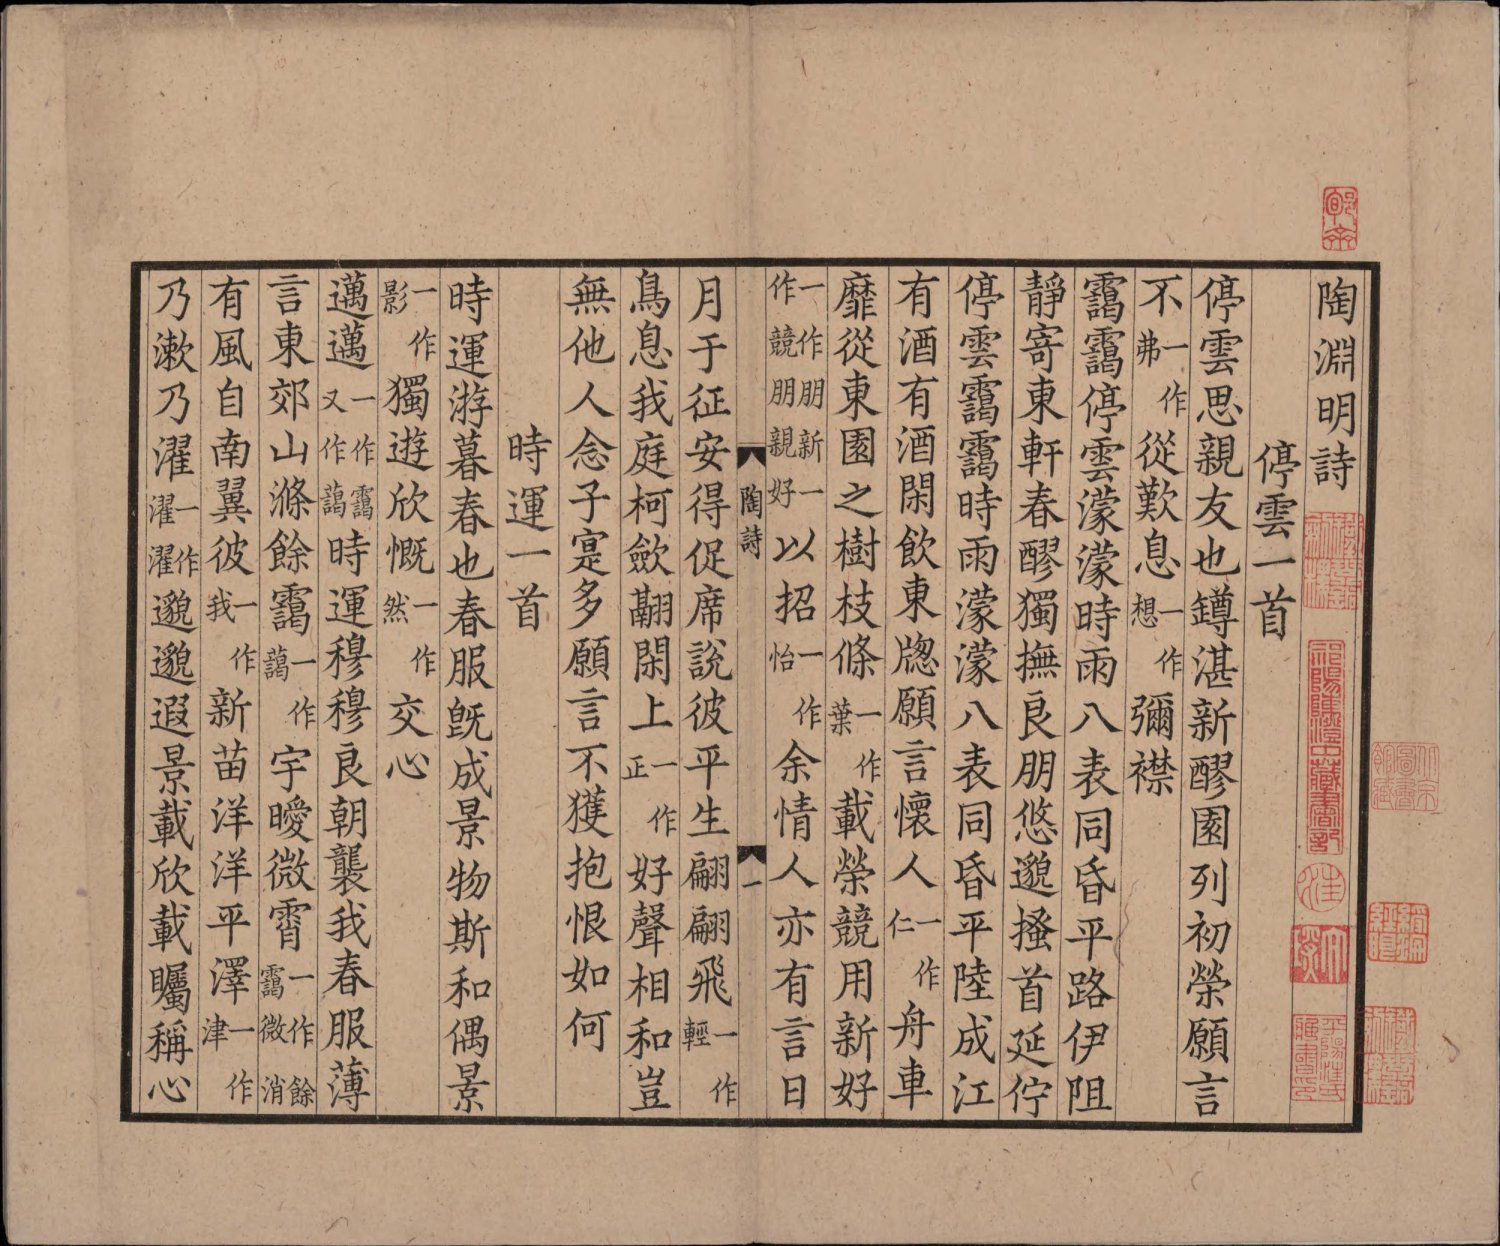 陶淵明詩
停雲一首
停雲思親友也罇湛新醪園列初榮願言
不一作弗從歎息一作想彌襟
靄靄停雲濛濛時雨八表同昏平路伊阻
靜寄東軒春醪獨撫良朋悠邈搔首延佇
停雲靄靄時雨濛濛八表同昏平陸成江
有酒有酒閑飲東牎願言懷人一作仁舟車
靡從東園之樹枝條一作葉載榮競用新好
一作朋新一作競朋親好以招一作怡余情人亦有言日
陶詩
一
月于征安得促席說彼平生翩翩飛一作輕
鳥息我庭柯歛翮閑上一作正好聲相和豈
無他人念子寔多願言不獲抱恨如何
時運一首
時運游暮春也春服旣成景物斯和偶景
一作影獨遊欣慨一作然交心
邁邁一作靄又作藹時運穆穆良朝襲我春服薄
言東郊山滌餘靄一作藹宇曖微霄一作餘靄微消
有風自南翼彼一作我新苗洋洋平澤一作津
乃漱乃濯一作濯濯邈邈遐景載欣載矚稱心
祁陽陳澄中藏書記